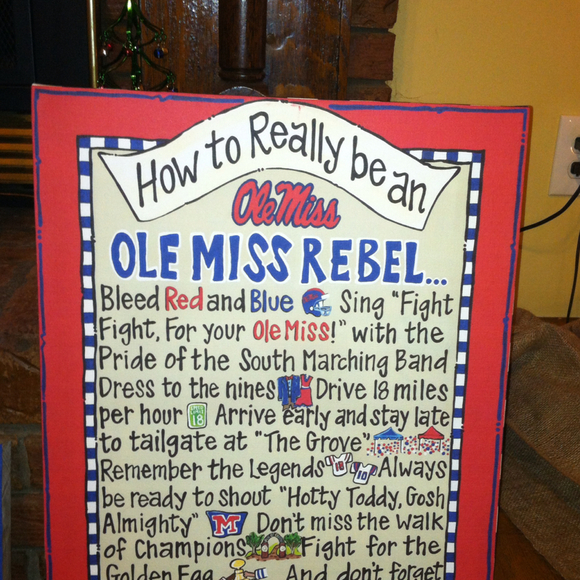 How to Really be an
Ole Miss
OLE MISS REBEL...
Bleed Red and Blue Sing "Fight
Fight, For your Ole Miss!" with the
Pride of the South Marching Band
Dress to the nines Drive 18 miles
per hour 18 Arrive early and stay late
to tailgate at "The Grove"
Remember the Legends 18 10 Always
be ready to shout "Hotty Toddy, Gosh
Almighty" M Don't miss the walk
of Champions Fight for the
Golden Egg And don't forget